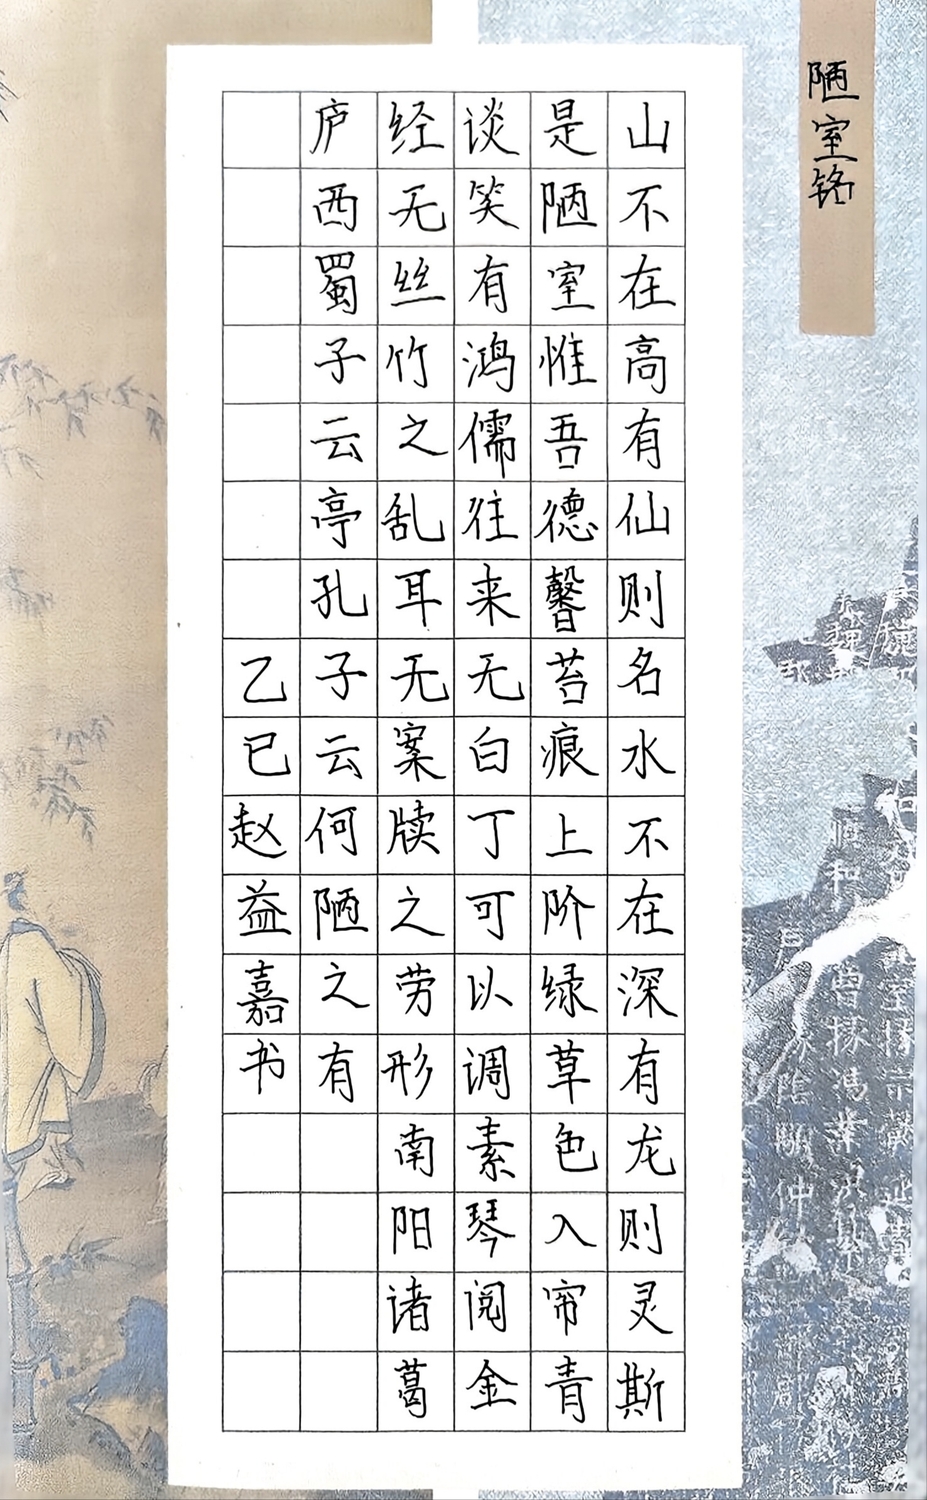 陋室铭
山不在高有仙则名水不在深有龙则灵斯
是陋室惟吾德馨苔痕上阶绿草色入帘青
谈笑有鸿儒往来无白丁可以调素琴阅金
经无丝竹之乱耳无案牍之劳形南阳诸葛
庐西蜀子云亭孔子云何陋之有
乙巳赵益嘉书